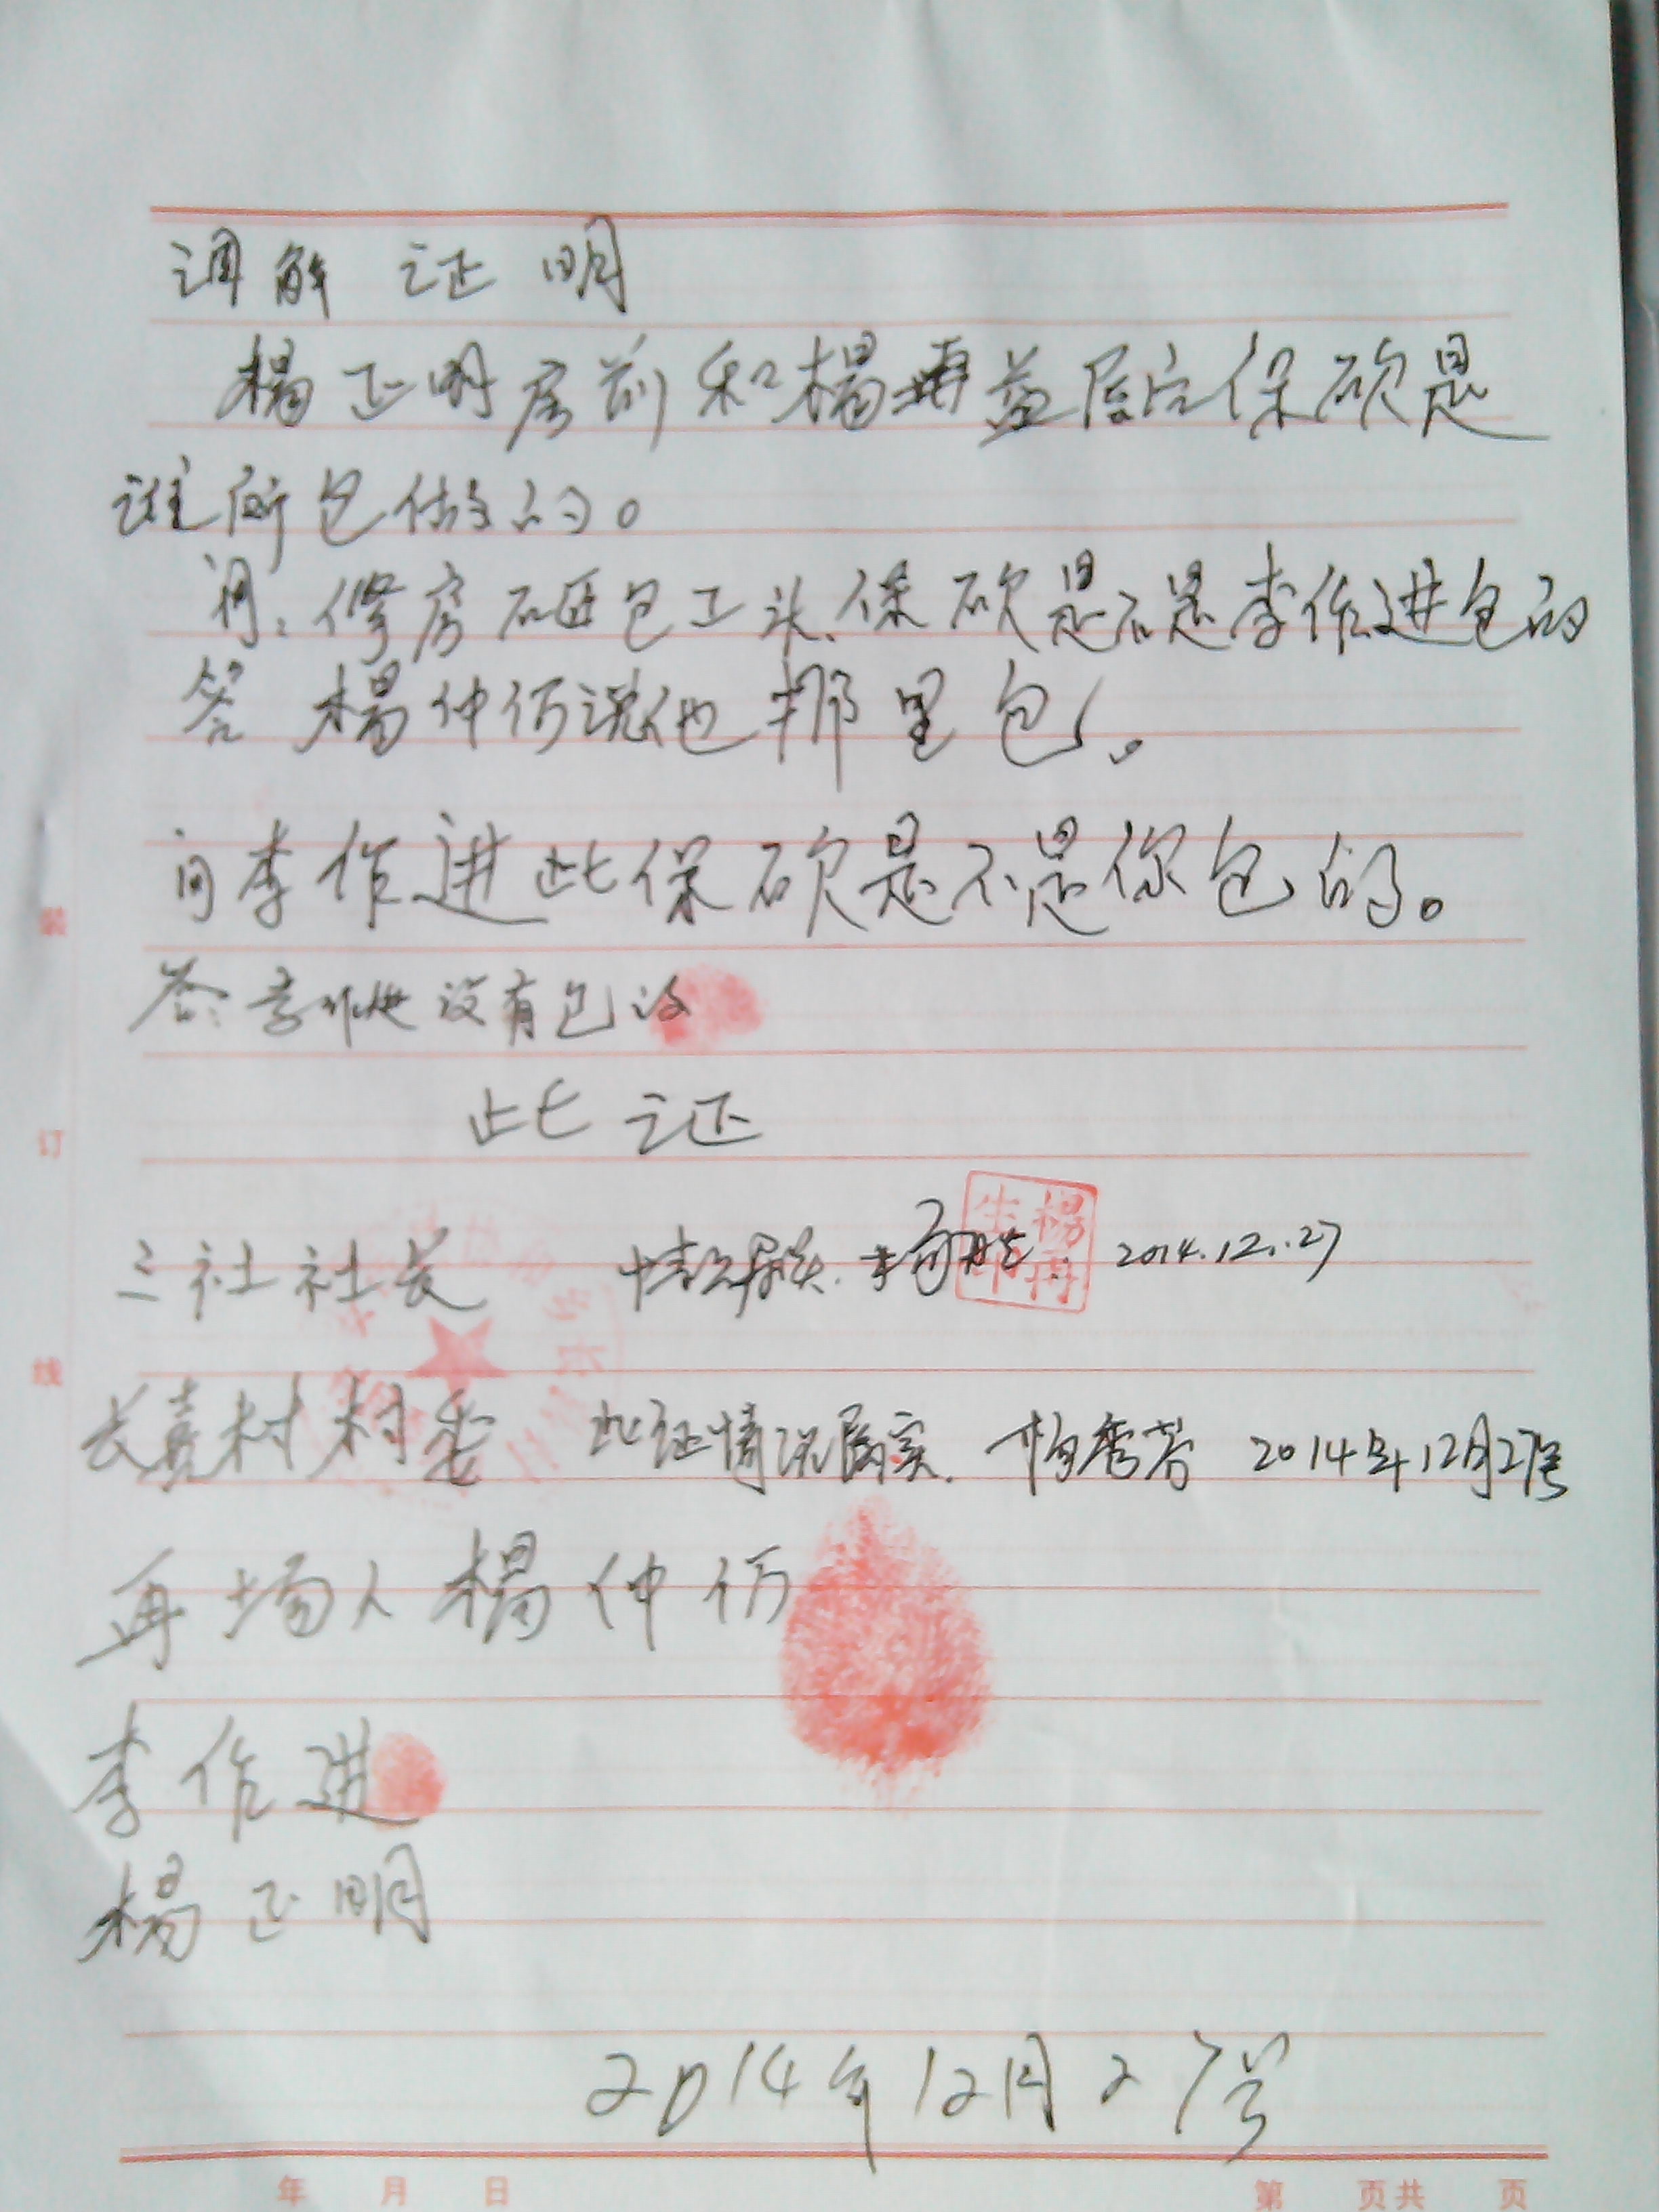 调解 证明
杨正明房前和杨再益居后保砍是
谁所包做的。
问：修房石匠包工头保砍是否是李作进包的
答 杨仲仍说他那里包。
问李作进此保砍是不是你包的。
答：李作进没有包过
此证
三社社长 情况属实. 2014.12.27
长嘉村村委 此证情况属实. 杨秀芳 2014年12月27号
再场人杨仲仍
李作进
杨正明
2014年12月27号
装
订
线
年 月 日 第 页共 页